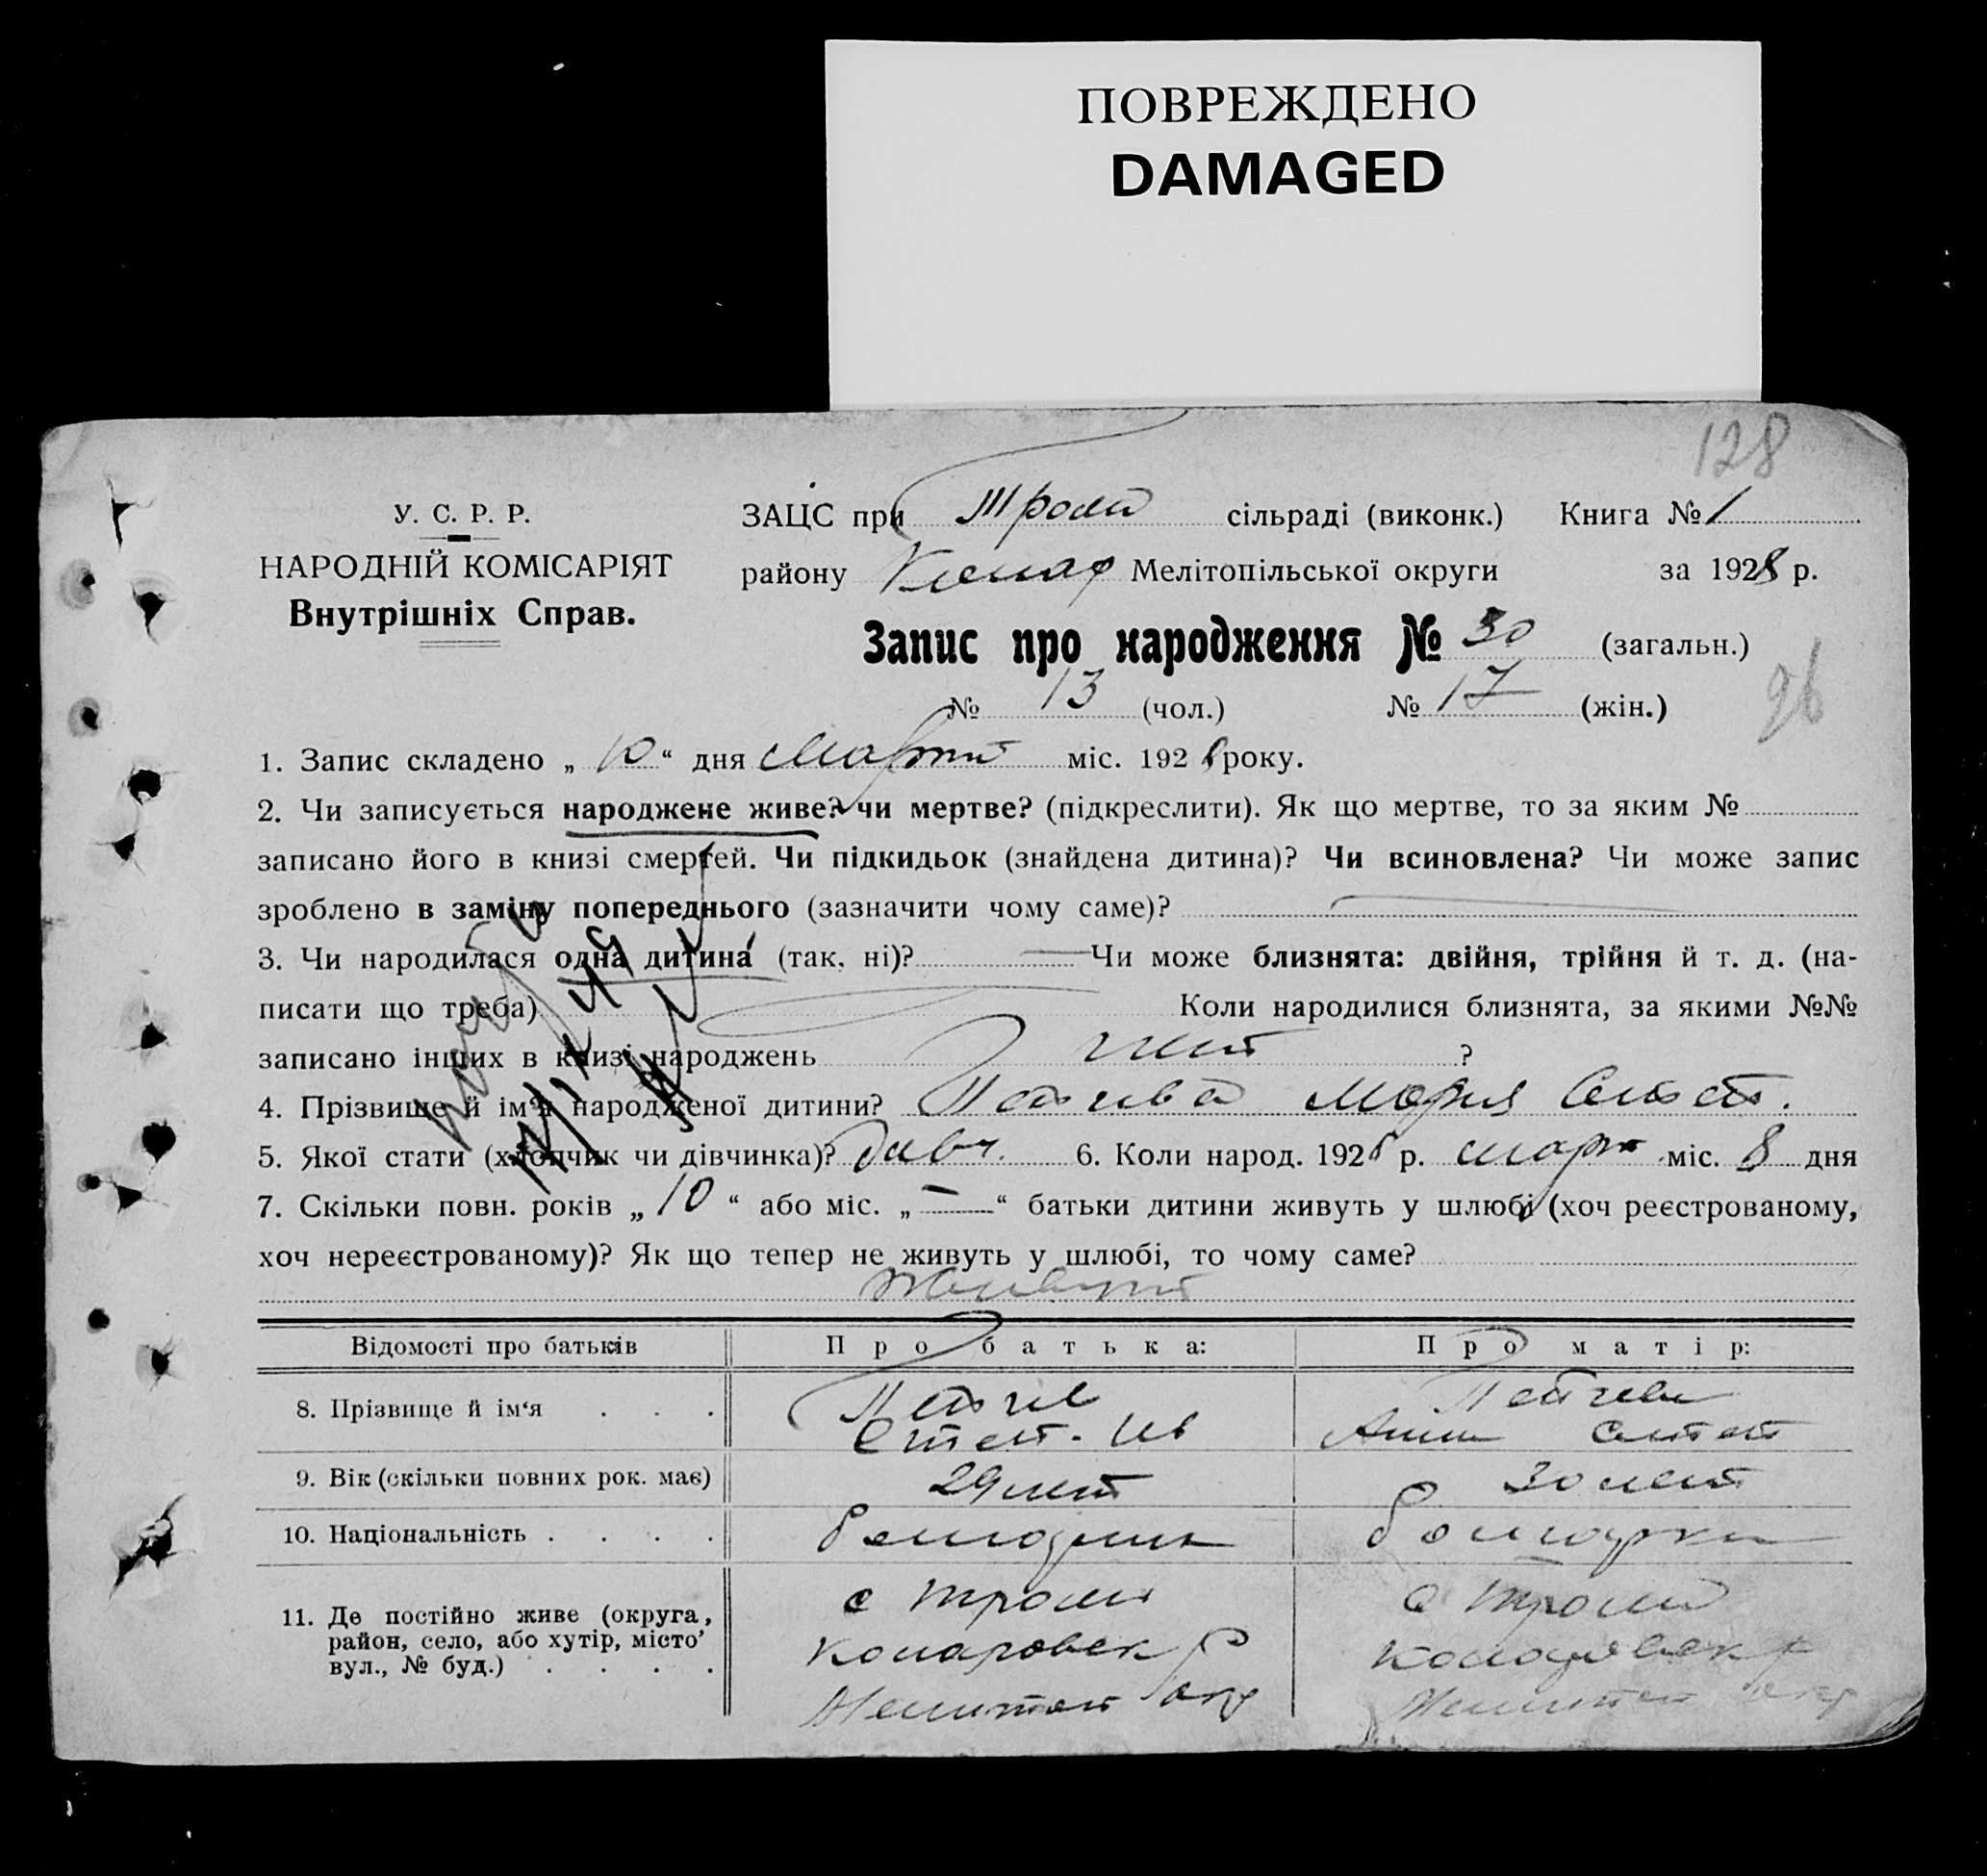 ПОВРЕЖДЕНО
DAMAGED
128
У. С. Р. Р.
НАРОДНІЙ КОМІСАРІЯТ
Внутрішніх Справ.
ЗАЦС при Троян сільраді (виконк.) Книга № 1
району Мелітопільської округи за 1928 р.
Запис про народження № 30 (загальн.)
№ 13 (чол.) № 17 (жін.)
26
1. Запис складено „ 10 “ дня Марта міс. 1928 року.
2. Чи записується народжене живе? чи мертве? (підкреслити). Як що мертве, то за яким №
записано його в книзі смертей. Чи підкидьок (знайдена дитина)? Чи всиновлена? Чи може запис
зроблено в заміну попереднього (зазначити чому саме)?
3. Чи народилася одна дитина (так, ні)? — Чи може близнята: двійня, трійня й т. д. (на-
писати що треба) Коли народилися близнята, за якими №№
записано інших в книзі народжень нет ?
4. Прізвище й ім‘я народженої дитини? Мария Степ.
5. Якої стати (хлопчик чи дівчинка)? дивч. 6. Коли народ. 1928 р. март міс. 8 дня
7. Скільки повн. років „ 10 “ або міс. „ — “ батьки дитини живуть у шлюбі (хоч реєстрованому,
хоч нереєстрованому)? Як що тепер не живуть у шлюбі, то чому саме?
живут
Відомості про батьків Про батька: Про матір:
8. Прізвище й ім‘я . . .
Степ. Ив Анна Степ
9. Вік (скільки повних рок. має) 29 лет 30 лет
10. Національність . . . . болгарин болгарка
11. Де постійно живе (округа, с Троян с Троян
район, село, або хутір, місто’ Коларовск р Коларовск р
вул., № буд.) . . . . Мелитоп окр Мелитоп окр